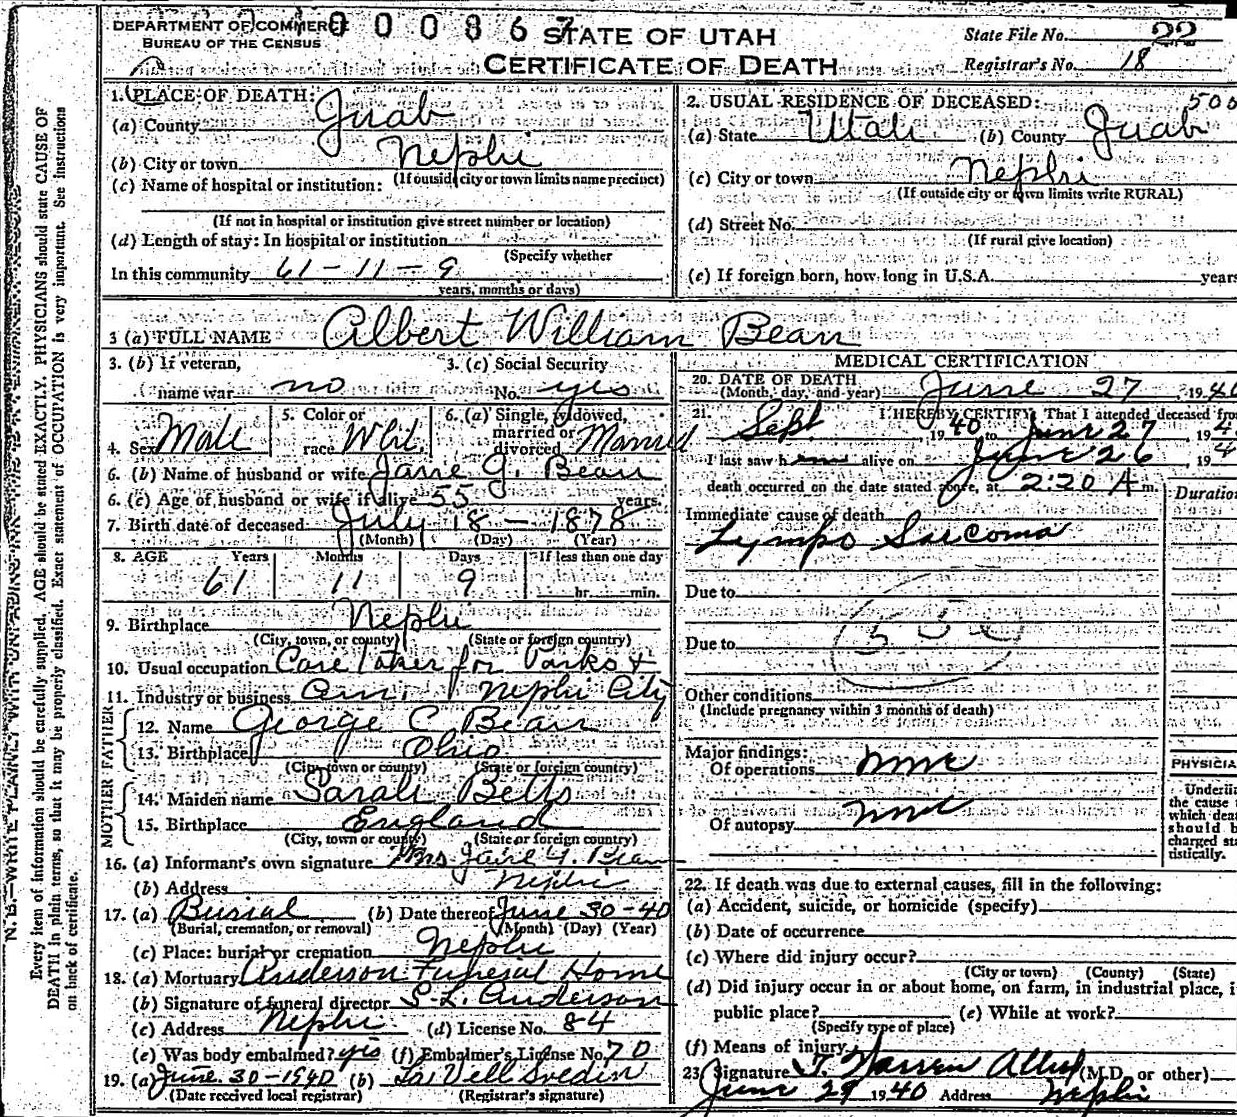 DEPARTMENT OF COMMERCE
BUREAU OF THE CENSUS
000867
STATE OF UTAH
CERTIFICATE OF DEATH
State File No. 22
Registrar's No. 18
N. B.—WRITE PLAINLY WITH UNFADING INK
Every item of information should be carefully supplied. AGE should be stated EXACTLY. PHYSICIANS should state CAUSE OF
DEATH in plain terms, so that it may be properly classified. Exact statement of OCCUPATION is very important. See instructions
on back of certificate.
1. PLACE OF DEATH:
(a) County Juab
(b) City or town Nephi
(If outside city or town limits name precinct)
(c) Name of hospital or institution:
(If not in hospital or institution give street number or location)
(d) Length of stay: In hospital or institution
(Specify whether
In this community 61-11-9
years, months or days)
2. USUAL RESIDENCE OF DECEASED: 500
(a) State Utah (b) County Juab
(c) City or town Nephi
(If outside city or town limits write RURAL)
(d) Street No.
(If rural give location)
(e) If foreign born, how long in U.S.A. years
3 (a) FULL NAME Albert William Bean
3. (b) If veteran,
name war no
3. (c) Social Security
No. yes
4. Sex Male
5. Color or
race Whit.
6. (a) Single, widowed,
married or
divorced Married
6. (b) Name of husband or wife Jane G. Bean
6. (c) Age of husband or wife if alive 55 years
7. Birth date of deceased July 18-1878
(Month) (Day) (Year)
8. AGE Years Months Days If less than one day
61 11 9 hr. min.
9. Birthplace Nephi
(City, town, or county) (State or foreign country)
10. Usual occupation Care taker for Parks +
11. Industry or business Cem. Nephi City
FATHER
12. Name George C Bean
13. Birthplace Ohio
(City, town or county) (State or foreign country)
MOTHER
14. Maiden name Sarah Betts
15. Birthplace England
(City, town or county) (State or foreign country)
16. (a) Informant's own signature Mrs Jane G. Bean
(b) Address Nephi
17. (a) Burial (b) Date thereof June 30-40
(Burial, cremation, or removal) (Month) (Day) (Year)
(c) Place: burial or cremation Nephi
18. (a) Mortuary Anderson Funeral Home
(b) Signature of funeral director S. L. Anderson
(c) Address Nephi (d) License No. 84
(e) Was body embalmed? yes (f) Embalmer's License No. 70
19. (a) June 30-1940 (b) LaVell Svedin
(Date received local registrar) (Registrar's signature)
MEDICAL CERTIFICATION
20. DATE OF DEATH June 27, 1940
(Month, day, and year)
21. I HEREBY CERTIFY, That I attended deceased from
Sept 1940 to June 27, 194
I last saw him alive on June 26, 194
death occurred on the date stated above, at 2:20 A m.
Duration
Immediate cause of death
Lympo Sarcoma
Due to
Due to
Other conditions
(Include pregnancy within 3 months of death)
Major findings:
Of operations none
Of autopsy none
PHYSICIA
Underli
the cause
which dea
should b
charged sta
tistically.
22. If death was due to external causes, fill in the following:
(a) Accident, suicide, or homicide (specify)
(b) Date of occurrence
(c) Where did injury occur?
(City or town) (County) (State)
(d) Did injury occur in or about home, on farm, in industrial place, i
public place? (e) While at work?
(Specify type of place)
(f) Means of injury
23. Signature T. Warren Allred (M.D. or other)
June 29 1940 Address Nephi